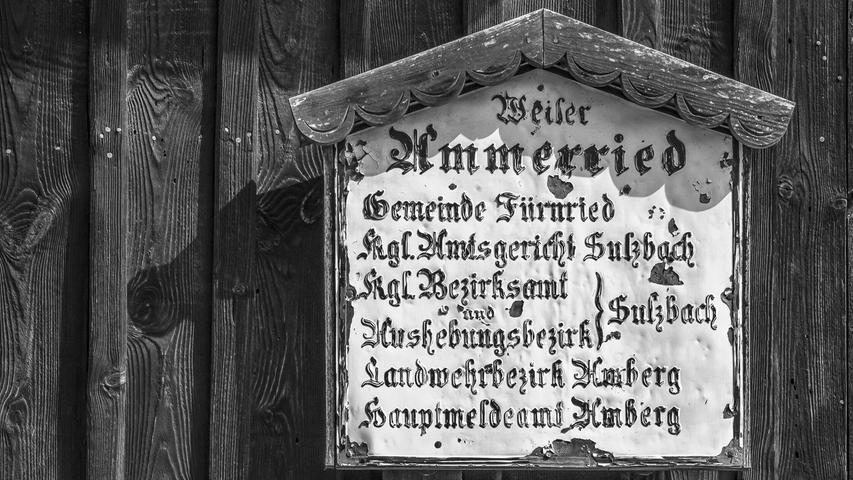 Weiler
Ammerried
Gemeinde Fürnried
Kgl. Amtsgericht Sulzbach
Kgl. Bezirksamt
und
Aushebungsbezirk
Sulzbach
Landwehrbezirk Amberg
Hauptmeldeamt Amberg